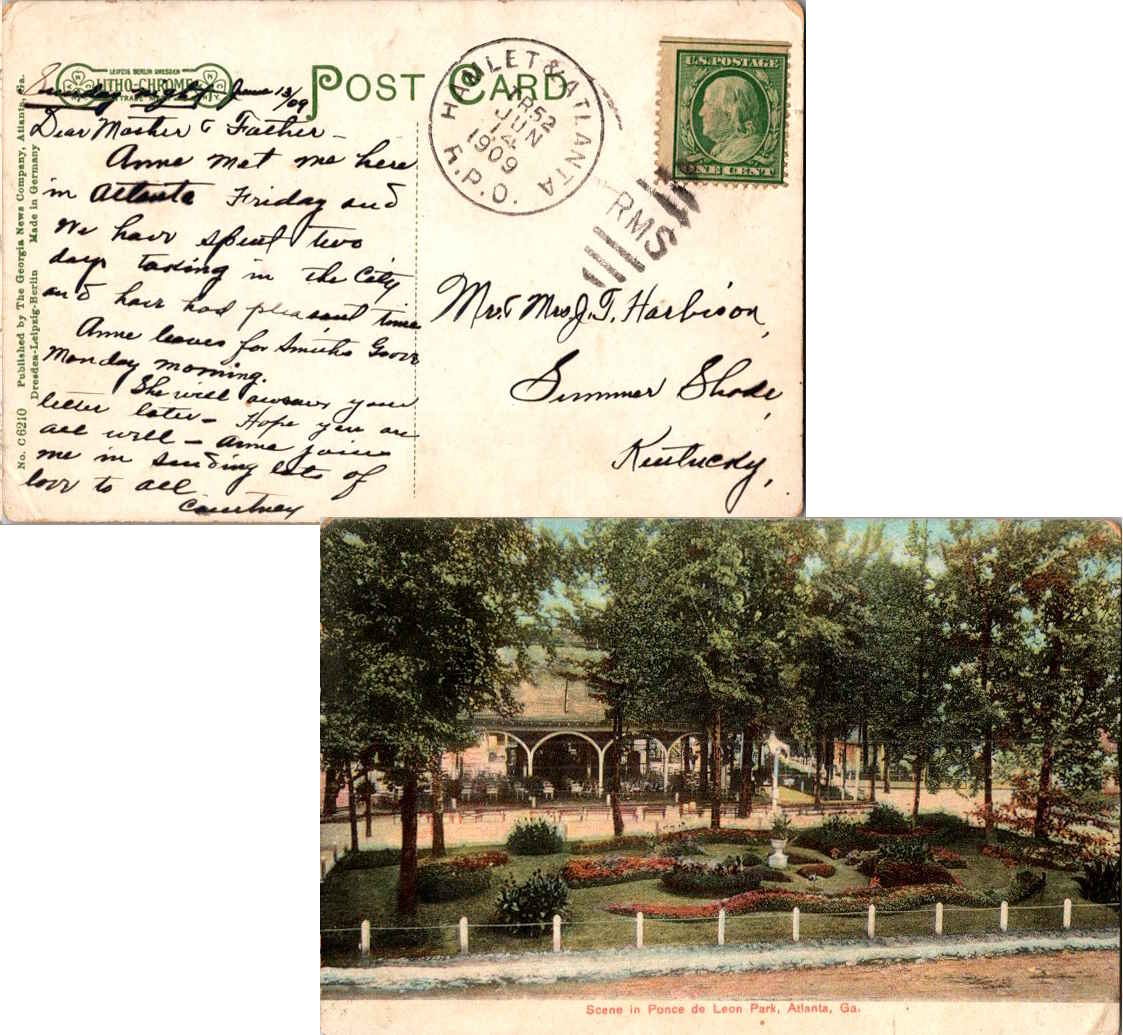 No. C6210 Published by The Georgia News Company, Atlanta, Ga.
Dresden-Leipzig-Berlin Made in Germany
LEIPZIG BERLIN DRESDEN
LITHO-CHROME
TRADE
POST CARD
HAMLET & ATLANTA
TR52
JUN
14
1909
R.P.O.
RMS
U.S. POSTAGE
ONE CENT
Sunday night June 13/09
Dear Mother & Father -
Anne met me here
in Atlanta Friday and
We have spent two
days taking in the City
and have had pleasant time
Anne leaves for Smiths Grove
Monday morning.
She will answer your
letter later - Hope you are
all well - Anne joins
me in sending lots of
love to all
Courtney
Mr. & Mrs. J. T. Harbison,
Summer Shade,
Kentucky,
Scene in Ponce de Leon Park, Atlanta, Ga.